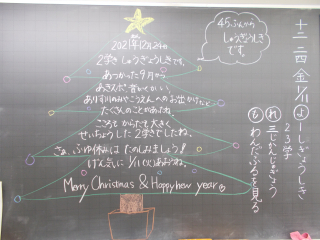 2021年12月24日
2学きしゅうぎょうしきです。
あつかった9月から
ありす川のみやこうえんへのお出かけなど
たくさんのことがあったね。
こころもからだも大きく
せいちょうした2学きでしたね。
さぁ、ふゆ休みはたのしみましょう!
げん気に1/11(火)あおうね。
Merry Christmas & Happy new year
45ぷんから
しゅうぎょうしき
です。
十二 二四 金 1/11
よ 一 しぎょうしき
2 3 学
れ 三 じかんじぎょう
ひ わんだふるを見る